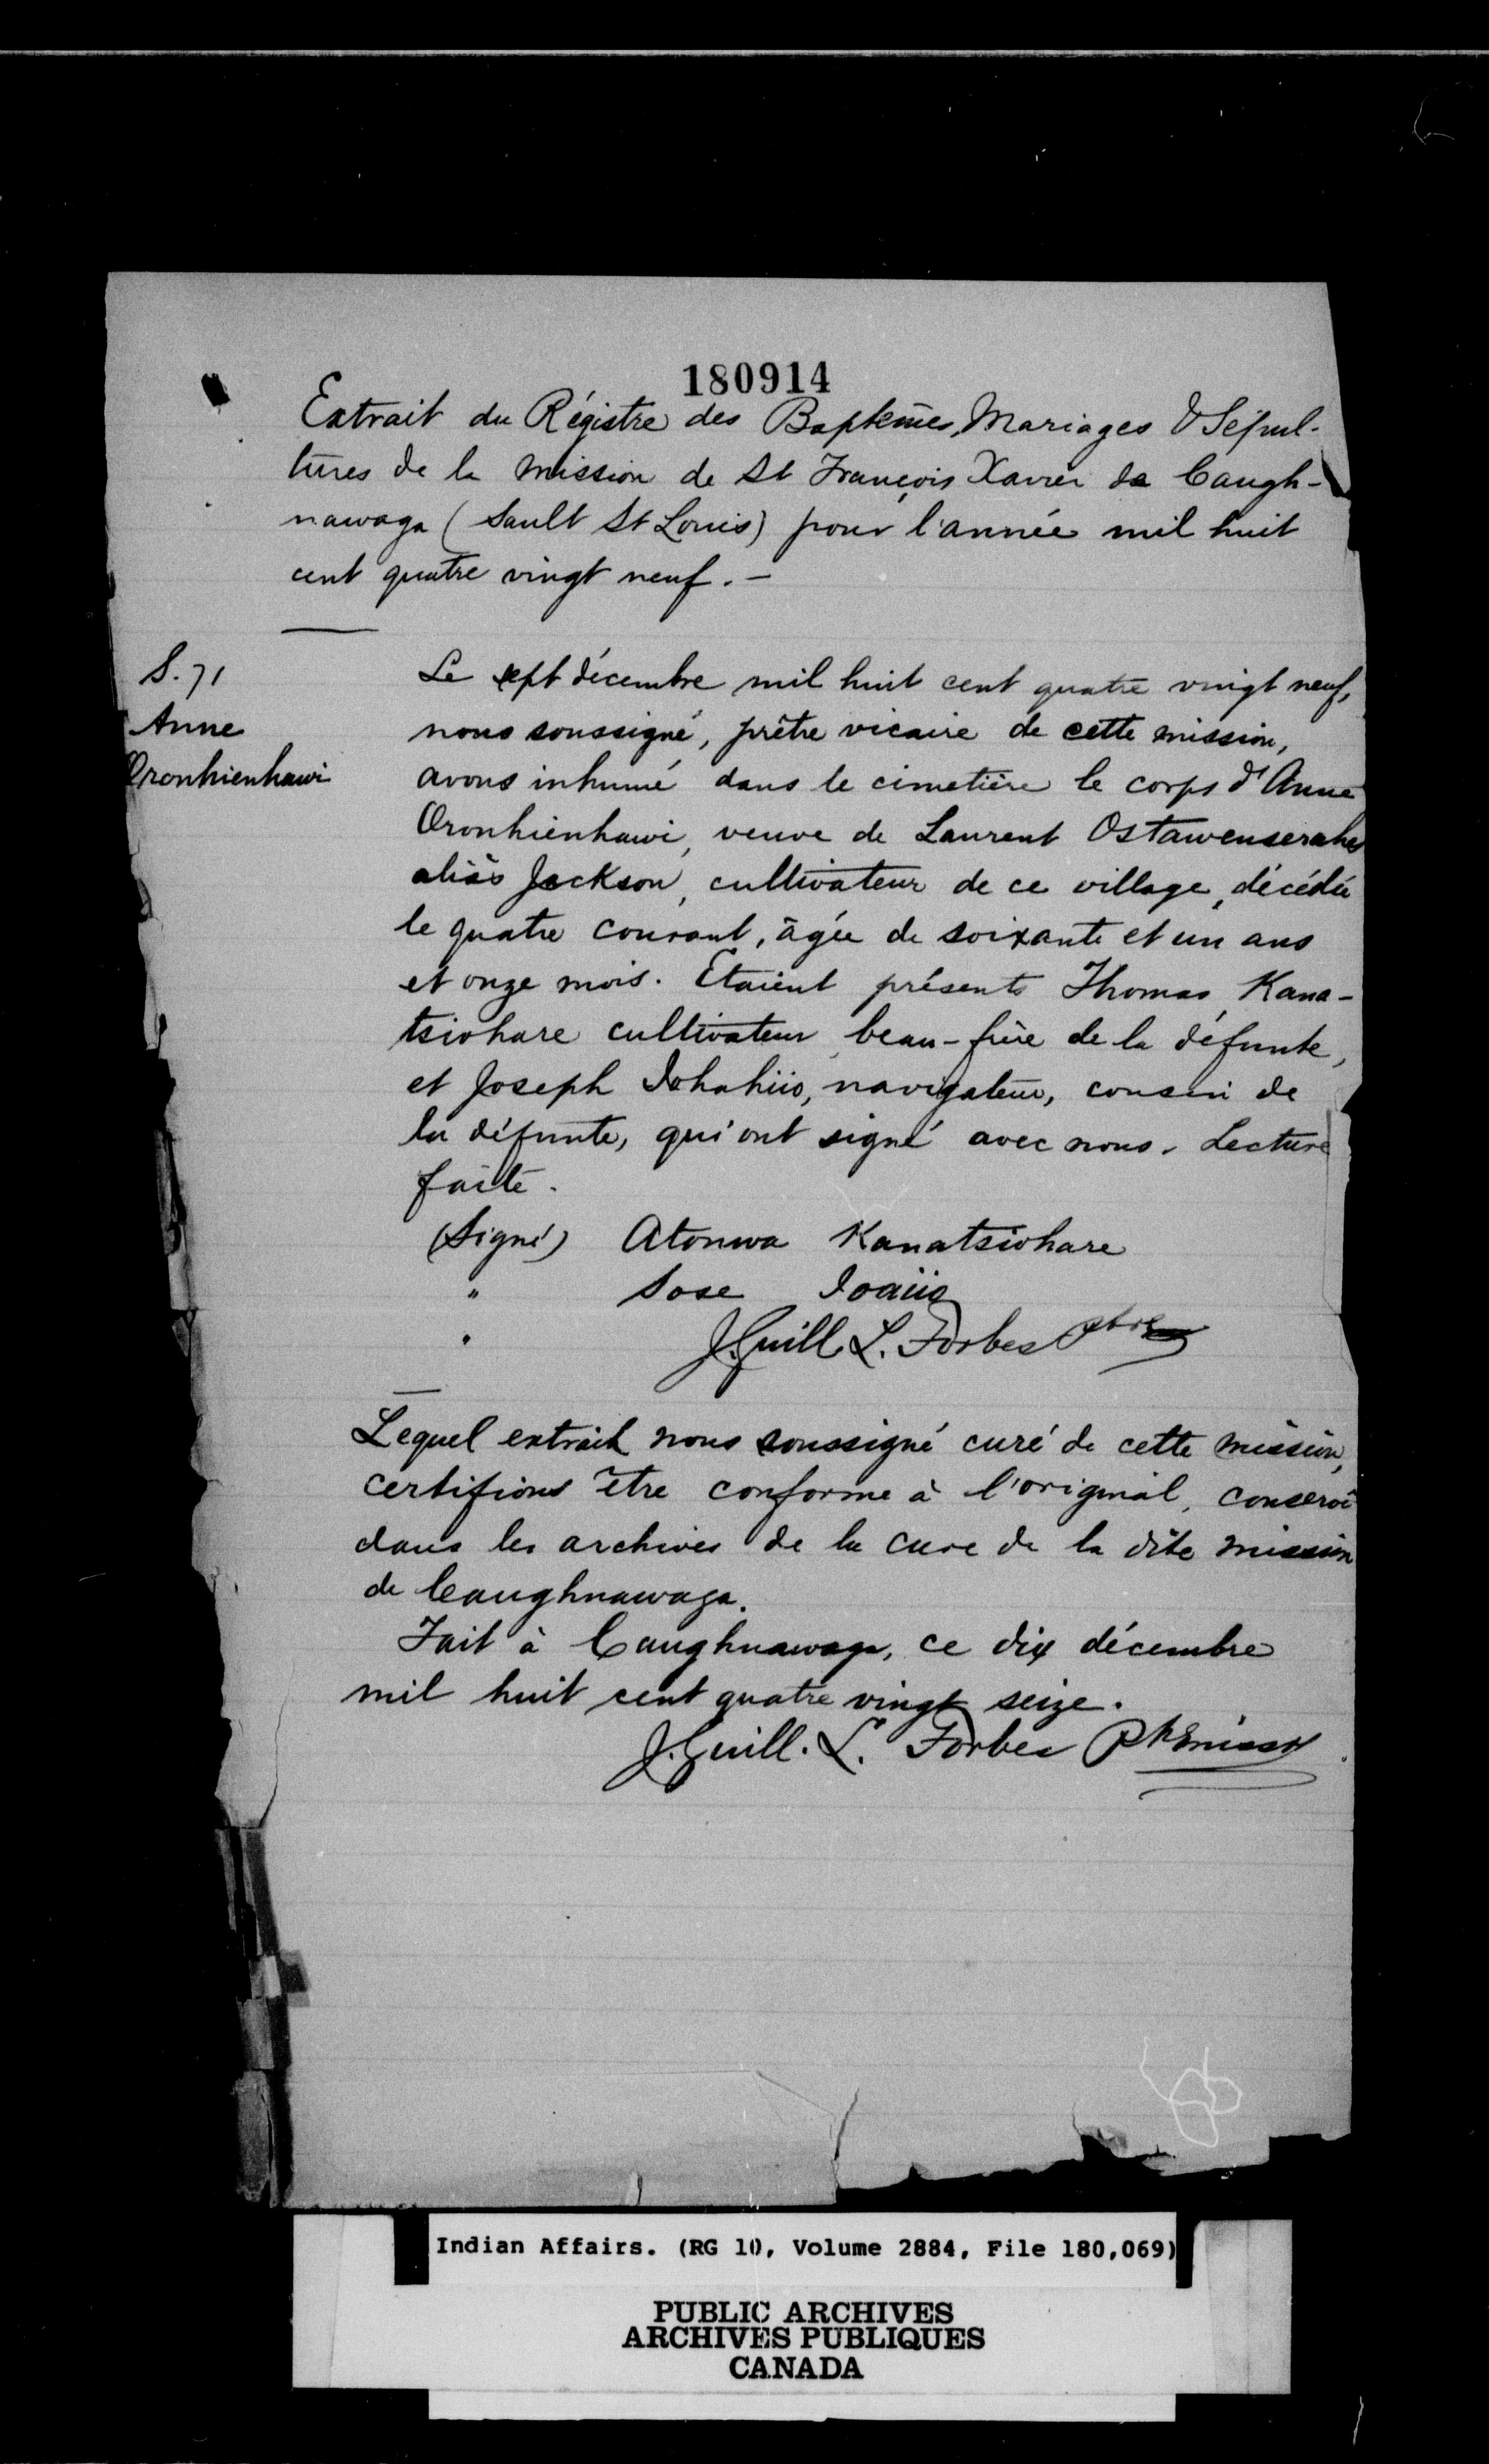 180914
Extrait du Régistre des Baptêmes, Mariages & Sépul-
tures de la Mission de St François Xavier de Caugh-
nawaga (Sault St Louis) pour l'année mil huit
cent quatre vingt neuf. —
S. 71
Anne
Oronhienhawi
Le sept décembre mil huit cent quatre vingt neuf,
nous soussigné, prêtre vicaire de cette mission,
avons inhumé dans le cimetière le corps d'Anne
Oronhienhawi, veuve de Laurent Ostawenserahe
aliàs Jackson, cultivateur de ce village, décédée
le quatre courant, âgée de soixante et un ans
et onze mois. Etaient présents Thomas Kana-
tsiohare cultivateur, beau-frère de la défunte,
et Joseph Iohahiio, navigateur, cousin de
la défunte, qui ont signé avec nous. Lecture
faite.
(Signé) Atonwa Kanatsiohare
" Sose Ioaiio
" J. Guill L. Forbes Ptre
Lequel extrait nous soussigné curé de cette mission,
certifions être conforme à l'original, conservé
dans les archives de la cure de la dite mission
de Caughnawaga.
Fait à Caughnawaga, ce dix décembre
mil huit cent quatre vingt seize.
J. Guill. L. Forbes Ptre miss
Indian Affairs. (RG 10, Volume 2884, File 180,069)
PUBLIC ARCHIVES
ARCHIVES PUBLIQUES
CANADA